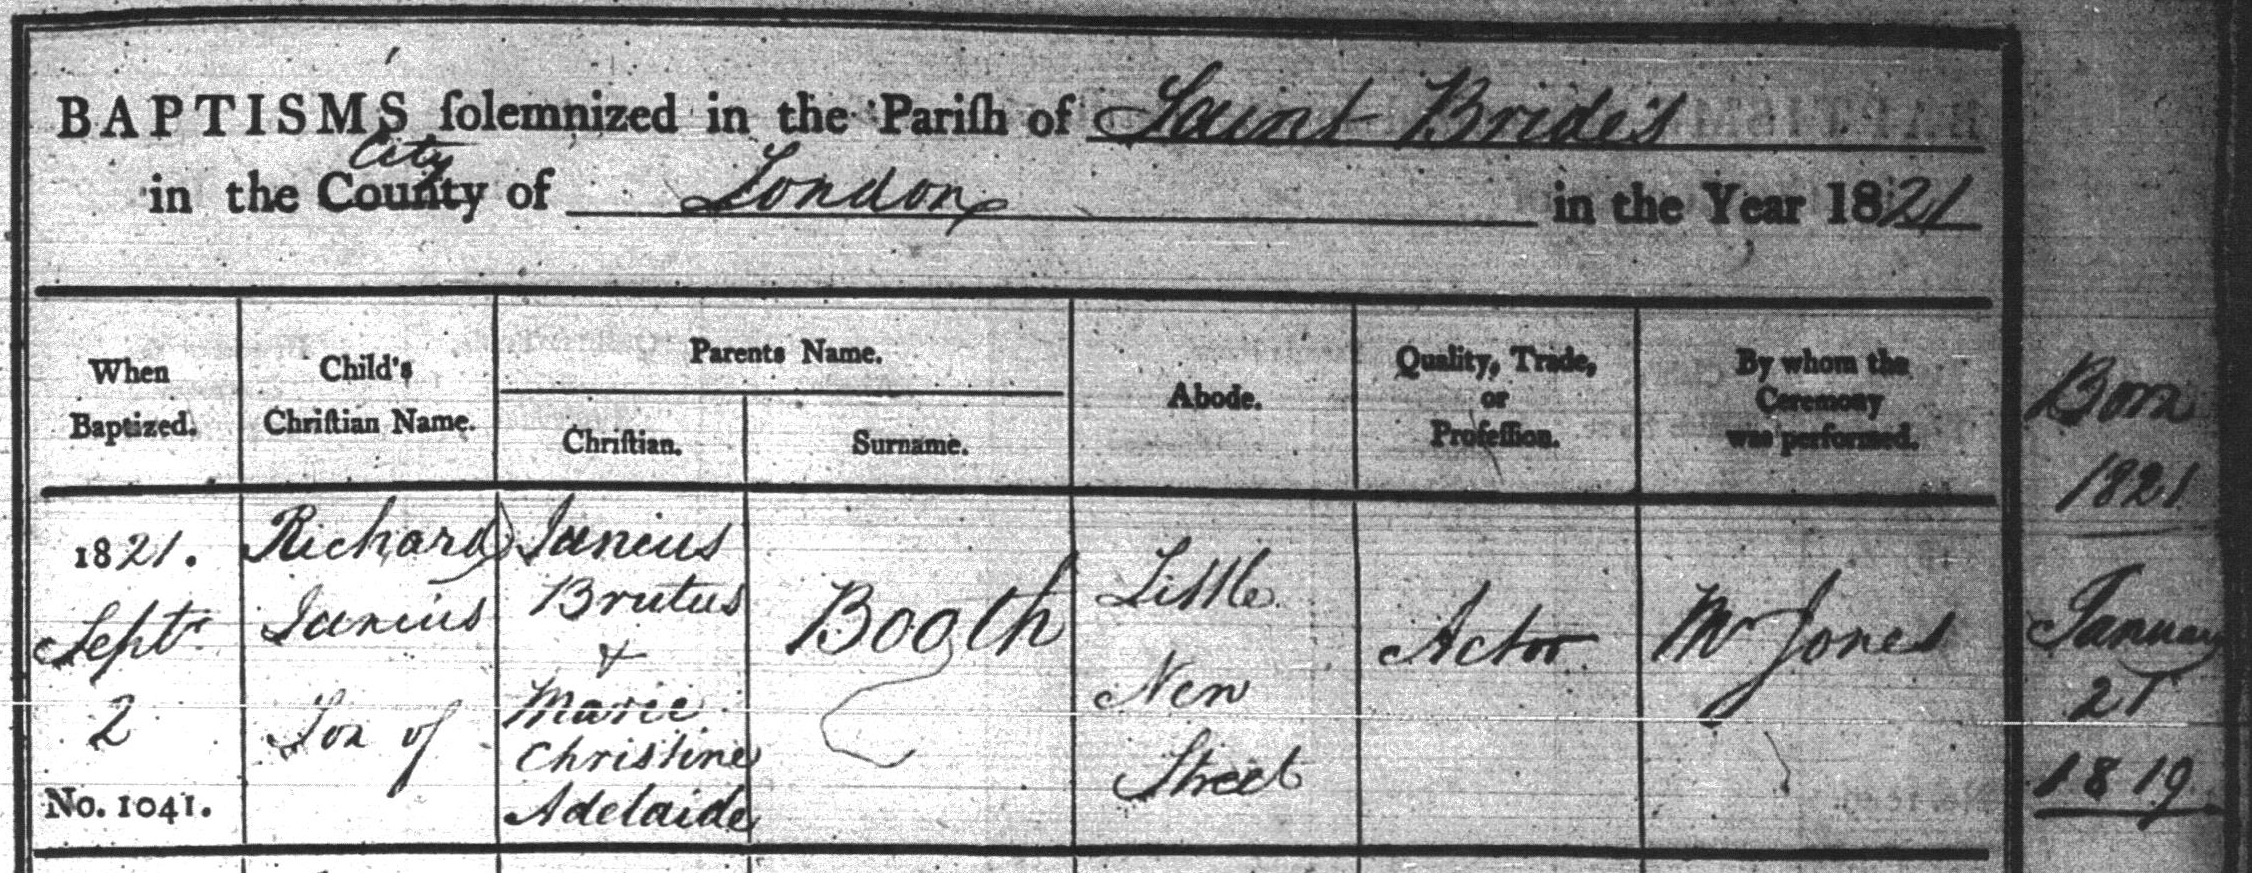 BAPTISMS ſolemnized in the Pariſh of Saint Bride's
City
in the County of London in the Year 1821
When
Baptized.
Child's
Chriſtian Name.
Parents Name.
Chriſtian.
Surname.
Abode.
Quality, Trade,
or
Profeſſion.
By whom the
Ceremony
was performed.
Born
1821
1821.
Septr
2
No. 1041.
Richard
Junius
Son of
Junius
Brutus
&
Marie
Christine
Adelaide
Booth
Little
New
Street
Actor
Mr Jones
January
21
1819